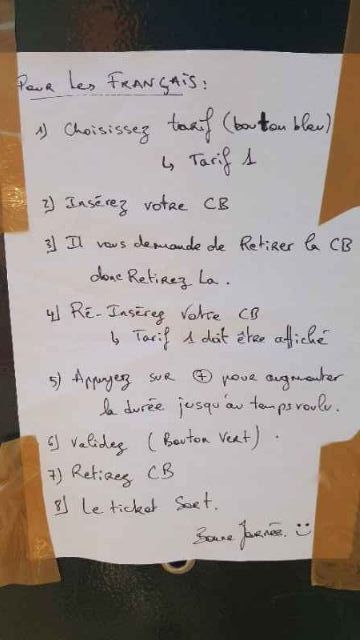 Pour les FRANÇAIS :
1) Choisissez tarif (bouton bleu)
↳ Tarif 1
2) Insérez votre CB
3) Il vous demande de Retirer la CB
donc Retirez La.
4) Ré-Insérez votre CB
↳ Tarif 1 doit être affiché
5) Appuyez sur ⊕ pour augmenter
la durée jusqu'au temps voulu.
6) Validez (Bouton Vert).
7) Retirez CB
8) Le ticket Sort.
Bonne Journée. :)